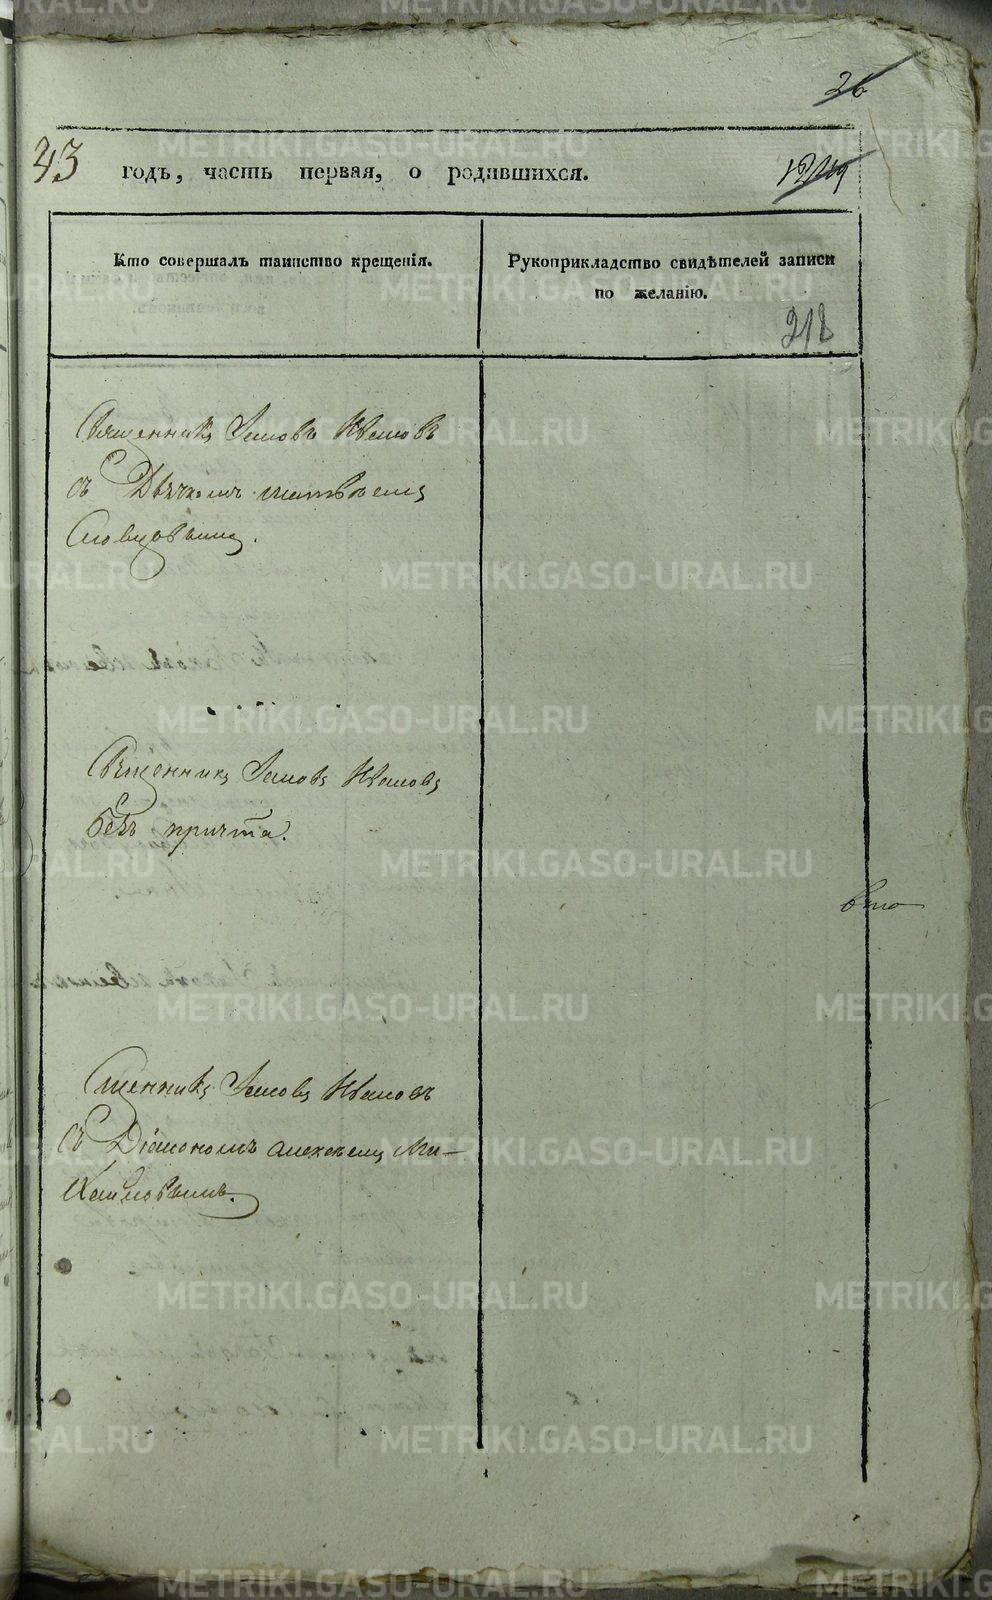 26
43 годъ, часть первая, о родившихся.
Кто совершалъ таинство крещенія.
Рукоприкладство свидѣтелей записи
по желанію.
218
Священникъ Іаковъ Ивановъ
съ Дьячкомъ Матвѣемъ
Словцовымъ.
Священникъ Іаковъ Ивановъ
безъ причта.
Сщенникъ Іаковъ Ивановъ
съ Діакономъ Алексѣемъ Ми-
хайловымъ.
METRIKI.GASO-URAL.RU